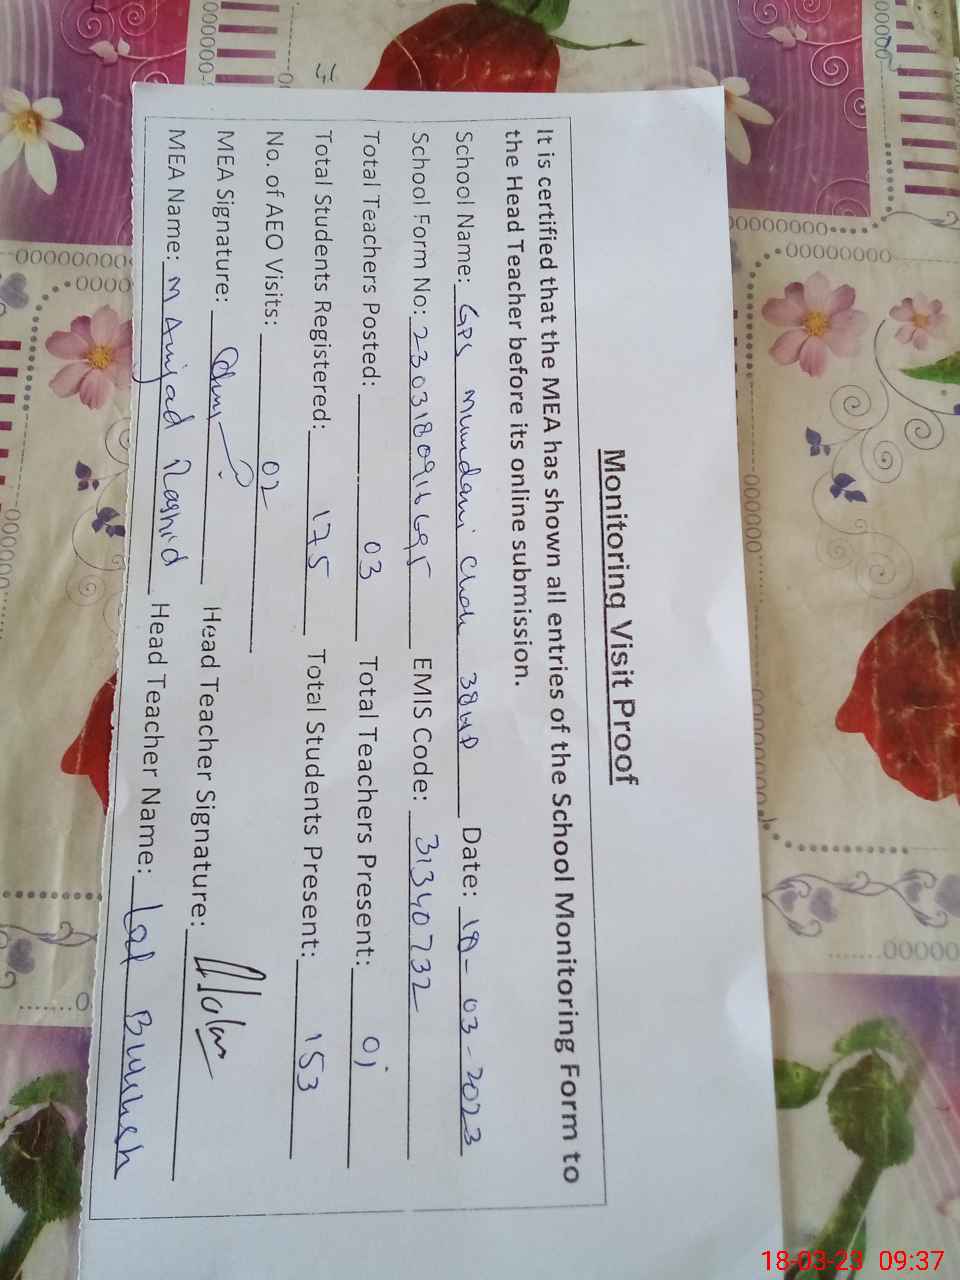 Monitoring Visit Proof
It is certified that the MEA has shown all entries of the School Monitoring Form to
the Head Teacher before its online submission.
School Name: GPS 38WP Date: 18-03-2023
School Form No: EMIS Code: 31340732
Total Teachers Posted: 03 Total Teachers Present: 01
Total Students Registered: 175 Total Students Present: 153
No. of AEO Visits: 02
MEA Signature: Head Teacher Signature:
MEA Name: M Amjad Rashid Head Teacher Name: Lal
18-03-23 09:37